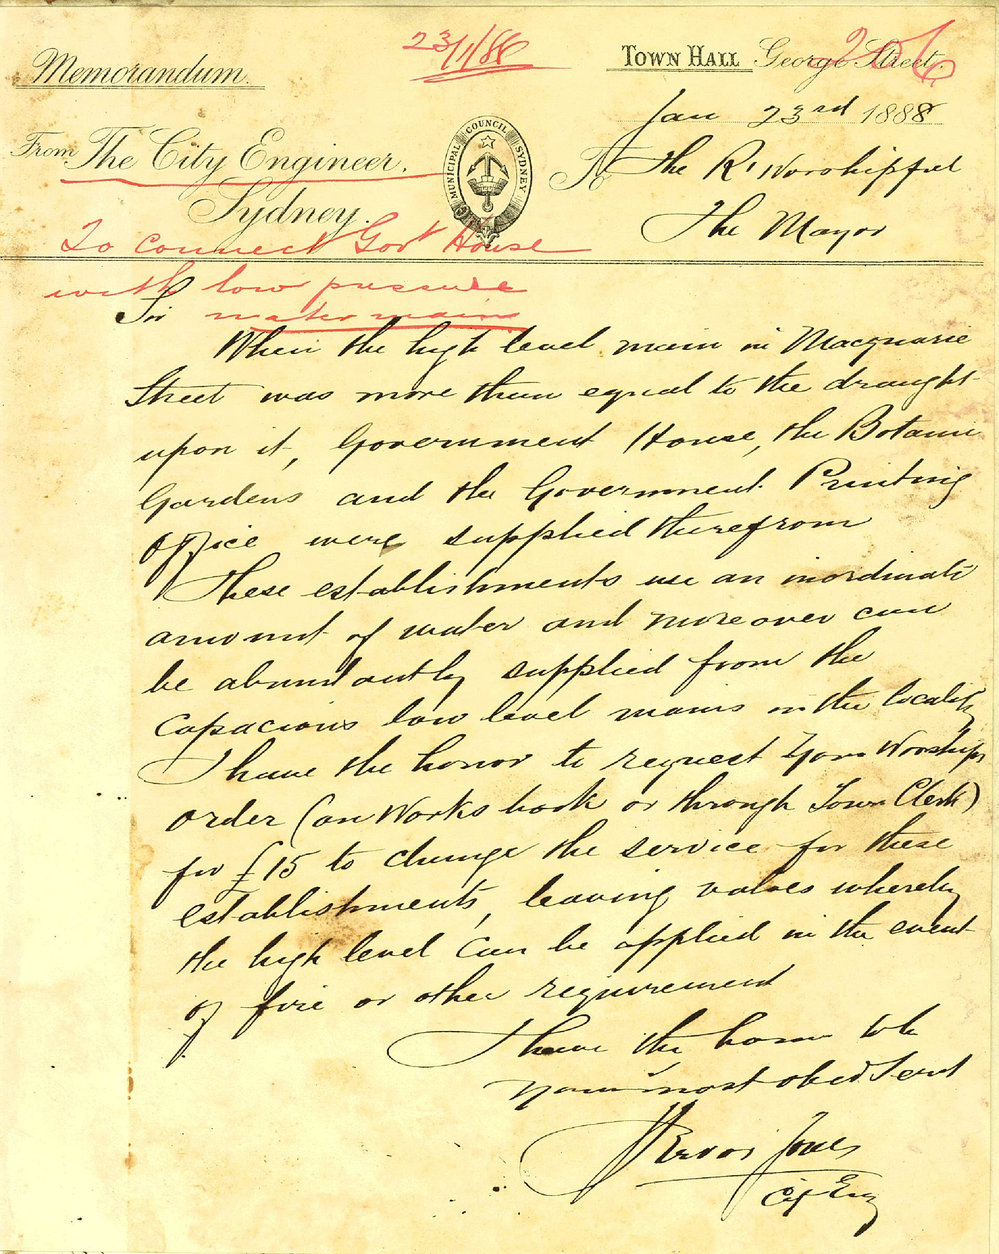 Memorandum
23/1/88
Town Hall George Street.
206
Jan 23rd 1888
From The City Engineer.
Sydney.
MUNICIPAL COUNCIL SYDNEY
To the Rt Worshipful
The Mayor
To connect Govt House
with low pressure
water mains
Sir
When the high level main in Macquarie
Street was more than equal to the draught
upon it, Government House, the Botanic
Gardens and the Government Printing
Office were supplied therefrom
These establishments use an inordinate
amount of water and moreover can
be abundantly supplied from the
capacious low level mains in the locality
I have the honor to request Your Worships
order (on Works book or through Town Clerk)
for £15 to change the service for these
establishments, leaving valves whereby
the high level can be applied in the event
of fire or other requirement
I have the honor to be
Your most obed Servt
Trevor Jones
City Eng